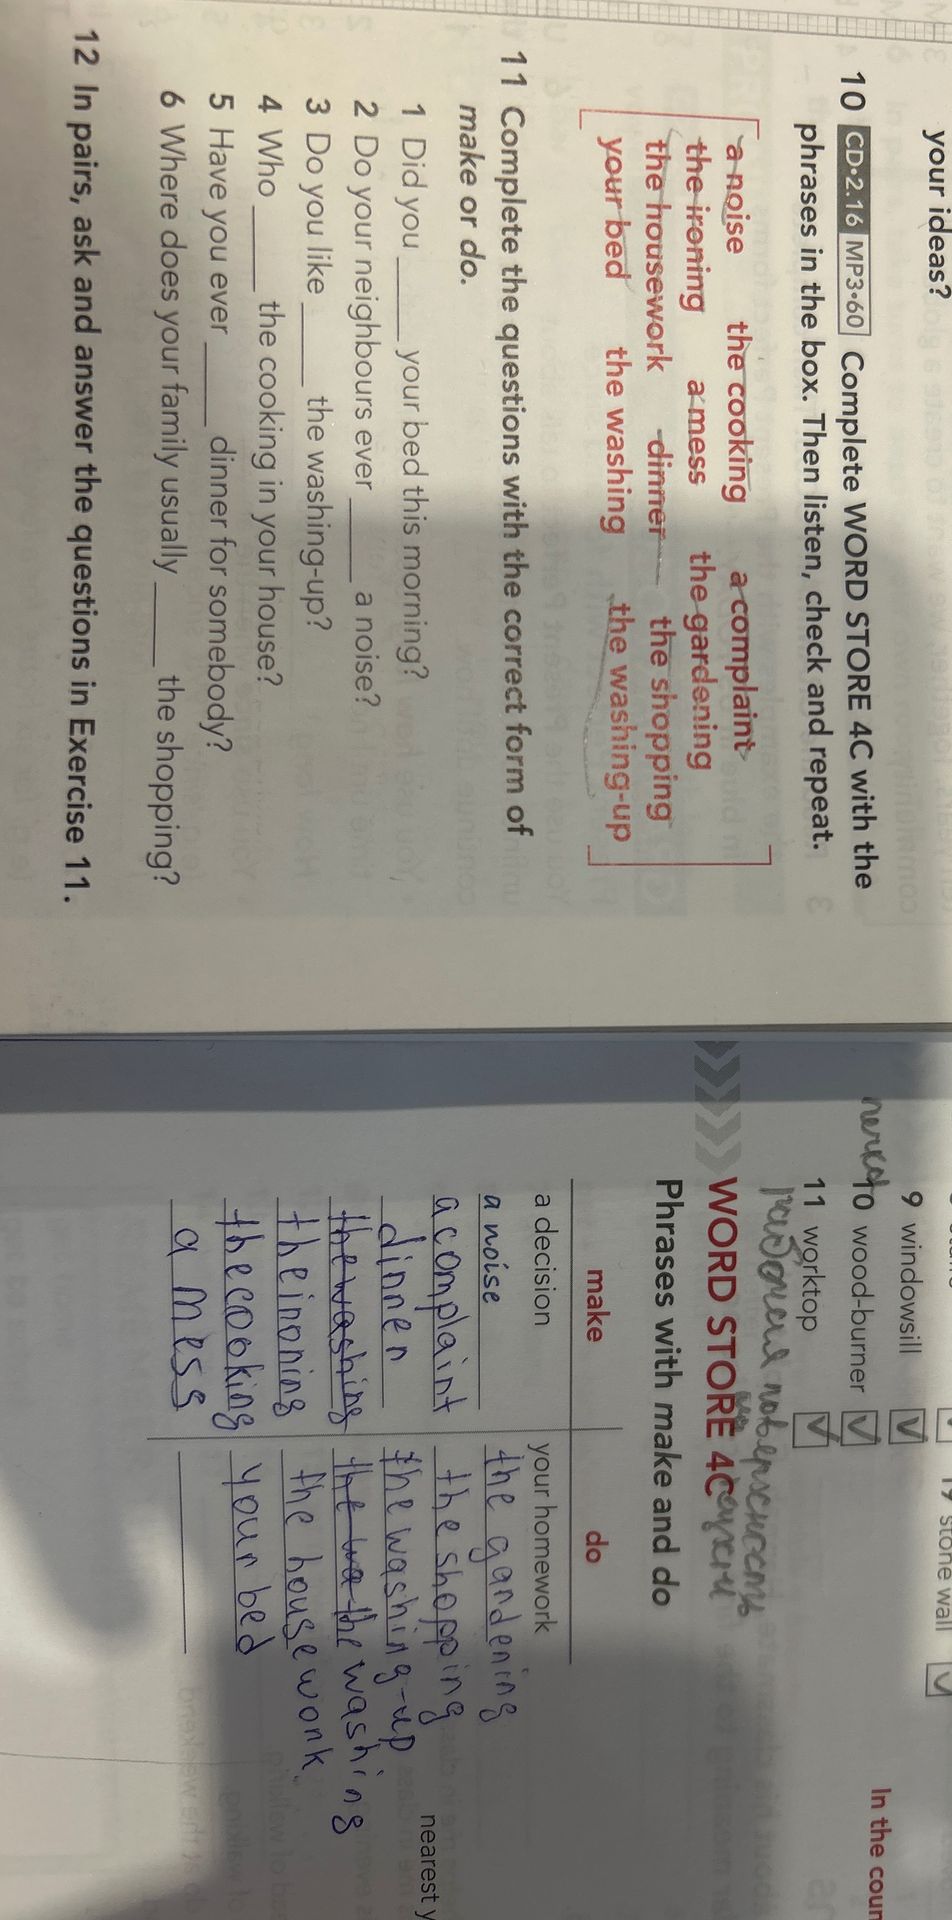 your ideas?
10 CD•2.16 MP3•60 Complete WORD STORE 4C with the
phrases in the box. Then listen, check and repeat.
a noise the cooking a complaint
the ironing a mess the gardening
the housework dinner the shopping
your bed the washing the washing-up
11 Complete the questions with the correct form of
make or do.
1 Did you ____ your bed this morning?
2 Do your neighbours ever ____ a noise?
3 Do you like ____ the washing-up?
4 Who ____ the cooking in your house?
5 Have you ever ____ dinner for somebody?
6 Where does your family usually ____ the shopping?
12 In pairs, ask and answer the questions in Exercise 11.
19 stone wall
9 windowsill
10 wood-burner
11 worktop
In the coun
WORD STORE 4C
Phrases with make and do
make do
a decision your homework
a noise the gardening
a complaint the shopping
dinner the washing-up
the washing the wa the washing
the ironing the housework
the cooking your bed
a mess
nearest y